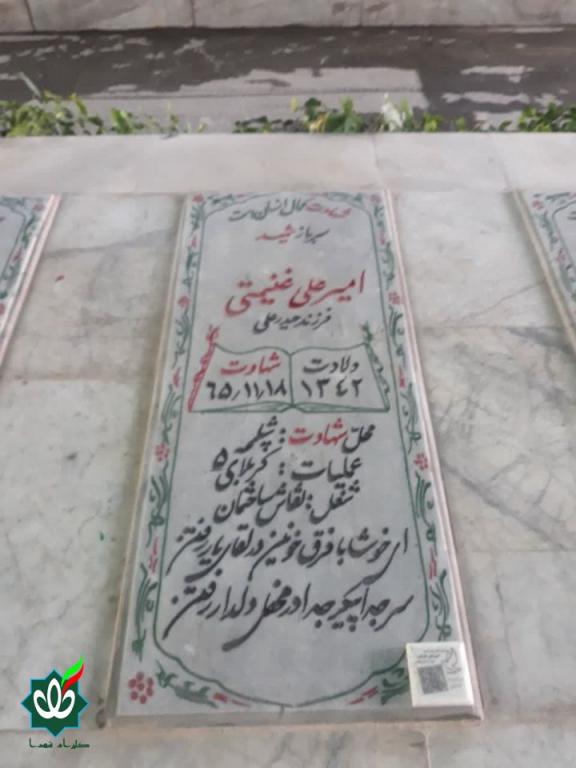 شهادت کمال انسان است
سرباز شهید
امیر علی غنیمتی
فرزند حیدرعلی
ولادت شهادت
۱۳۴۲ ۶۵/۱۱/۱۸
محل شهادت: شلمچه
عملیات: کربلای ۵
شغل: نقاش ساختمان
ای خوشا با فرق خونین در لقای یار رفتن
سر جدا پیکر جدا در محفل دلدار رفتن